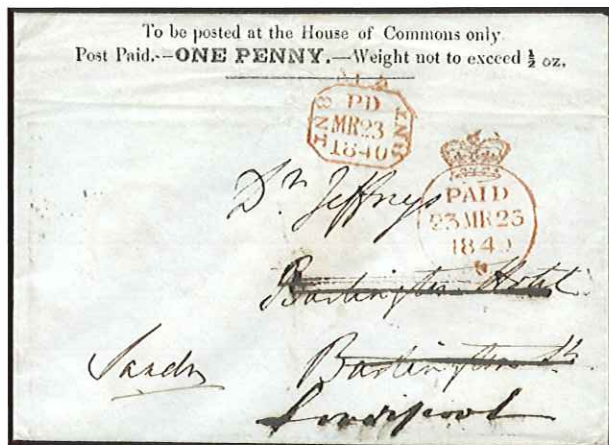 To be posted at the House of Commons only
Post Paid.—ONE PENNY.—Weight not to exceed ½ oz.
PD
8NT 8NT
MR23
1840
PAID
23MR23
1840
Dr Jeffreys
Burlington Hotel
Burlington St.
Liverpool